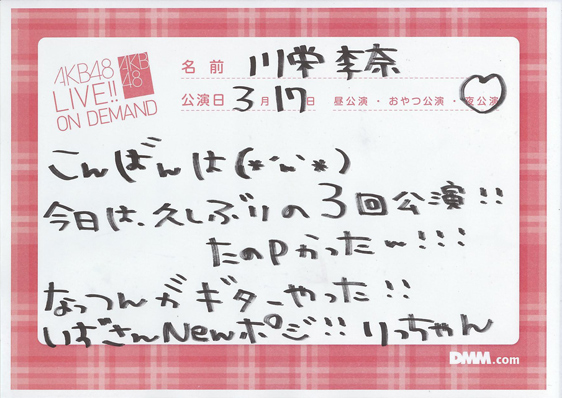 AKB48
LIVE!!
ON DEMAND
AKB
48
名前 川栄李奈
公演日 3月17日 昼公演・おやつ公演・夜公演
こんばんは(*´ω`*)
今日は、久しぶりの3回公演!!
たのPかったw!!!
なっつんがギターやった!!
いずさんNewポジ!! りっちゃん
DMM.com